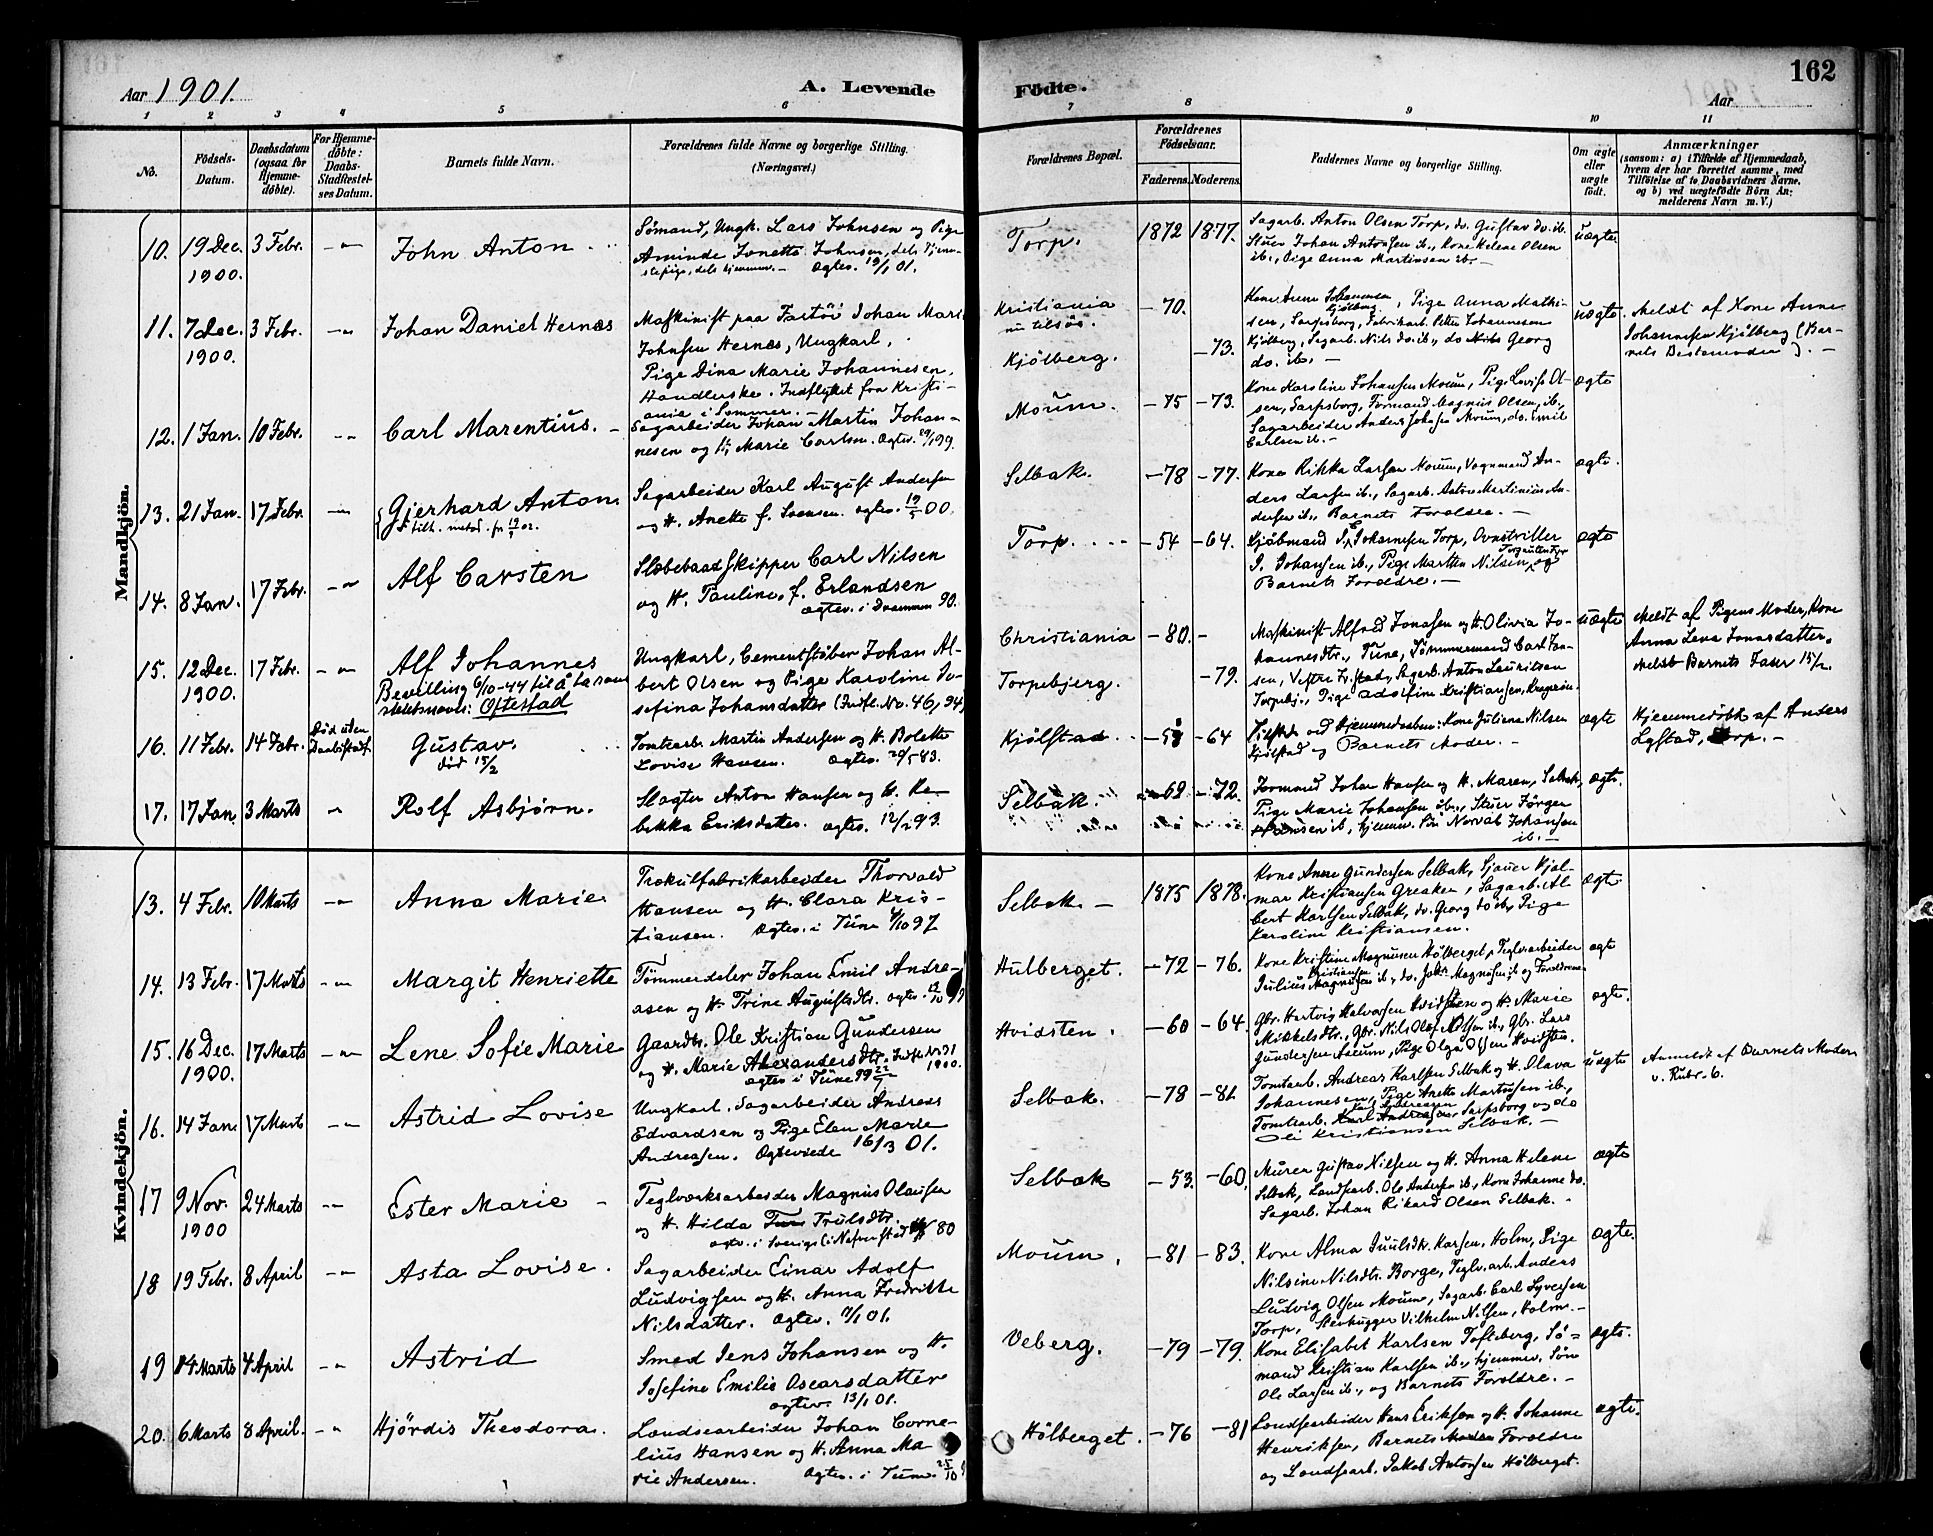 Aar 1901.
A. Levende
Födte.
162
Aar
1 2 3 4 5 6 7 8 9 10 11
No.
Födsels-
Datum.
Daabsdatum
(ogsaa for
Hjemme-
döbte).
For Hjemme-
döbte:
Daabs-
Stadfæstel-
ses Datum.
Barnets fulde Navn.
Forældrenes fulde Navne og borgerlige Stilling.
(Næringsvei.)
Forældrenes Bopæl.
Forældrenes
Födselsaar.
Faderens.
Moderens.
Faddernes Navne og borgerlige Stilling.
Om ægte
eller
uægte
födt.
Anmærkninger
(saasom: a) i Tilfælde af Hjemmedaab,
hvem der har forrettet samme, med
Tilföielse af to Daabsvidners Navne,
og b) ved uægtefödte Börn An-
melderens Navn m. V.)
Mandkjön.
10. 19 Dec. 1900. 3 Febr. John Anton
Sömand, Ungk. Lars Johnsen og Pige
Aminde Jonette Johnsen, dels Tjene-
stepige, dels hjemme. - Ægtev. 19/1 01.
Torp. 1872 1877.
Sagarb. Anton Olsen Torp, do. Gustav do. ib.
Stuer Johan Antonsen ib., Kone Helene Olsen
ib., Pige Anna Martinsen ib. -
uægte
11. 7 Dec. 1900. 3 Febr. Johan Daniel Hernæs
Maskinist paa Fartöi Johan Mari
Johnsen Hernæs, Ungkarl,
Pige Dina Marie Johannesen,
Handlerske. Indflyttet fra Kristi-
ania i Sommer. -
Kristiania
nu tilsös.
Kjölberg.
-70. -73.
Kone Anne Johannesen
Kjölberg, Pige Anna Mathi-
sen, Sarpsborg, Fabrikarb. Peter Johannesen
Kjölberg, Sagarb. Nils do. ib., do Nils Georg
do. ib. -
uægte
Meldt af Kone Anne
Johannesen Kjölberg (Bar-
nets Bestemoder). -
12. 1 Jan. 10 Febr. Carl Marentius.
Sagarbeider Johan Martin Johan-
nesen og H. Marie Carlsen. Ægtev. 29/1 99.
Moum. -75 -73.
Kone Karoline Johansen Moum, Pige Lovise Ol-
sen, Sarpsborg, Formand Magnus Olsen, ib.,
Sagarbeider Anders Johnsen Moum, do. Emil
Carlsen ib. -
ægte
13. 21 Jan. 17 Febr. Gjerhard Anton.
tilh. metod. fr 19/9 02.
Sagarbeider Karl August Andersen
og H. Anette f. Svensen. Ægtev. 19/5 00.
Selbak. -78 -77.
Kone Rikka Larsen Moum, Vognmand An-
ders Larsen ib., Sagarb. Anton Martinius An-
dersen ib., Barnets Forældre. -
ægte.
14. 8 Jan. 17 Febr. Alf Carsten
Slæbebaadskipper Carl Nilsen
og H. Pauline, f. Erlandsen
Ægtev. i Drammen 90.
Torp. -54 -64.
Kjöbmand Johannesen Torp, Ovnstriller
J. Johansen ib., Pige Marthe Nilsen, og
Barnets Forældre. -
ægte
15. 12 Dec. 1900. 17 Febr. Alf Johannes
Bevilling 6/10-44 til å ta som
slektsnavn: Oftestad
Ungkarl, Cementstöber Johan Al-
bert Olsen og Pige Karoline Jo-
sefina Johansdatter (Indfl. No. 46/94)
Christiania
Torpebjerg.
-80. -79.
Maskinist Alfred Jonasen og H. Olivia Jo-
hannesdtr., Tune, Tömmermand Carl Jon-
sen, Vestre Fr.stad, Sagarb. Anton Lauritsen
Torpebj., Pige Adolfine Kristiansen, Kragerön.
uægte
Meldt af Pigens Moder, Kone
Anna Lena Jonasdatter.
Meldt Barnets Fader 15/2.
16. 11 Febr. 14 Febr. Död uden Daabsstadf.
Gustav.
död 15/2
Tomtearb. Martin Andersen og H. Bolette
Lovise Hansen. Ægtev. 20/5 83.
Kjölstad -64
Tilstede ved Hjemmedaaben: Kone Juliane Nilsen
Kjölstad og Barnets Moder. -
ægte
Hjemmedöbt af Anders
Lystad, Torp. -
17. 17 Jan. 3 Marts Rolf Asbjørn.
Slagter Anton Hansen og H. Re-
bekka Eriksdatter. Ægtev. 12/2 93.
Selbak. -69 -72.
Formand Johan Hansen og H. Maren, Selbak,
Pige Marie Johansen ib., Stuer Jörgen
Hansen ib., hjemmev. Sön Norval Johansen
ib. -
ægte.
Kvindekjön.
13. 4 Febr. 10 Marts Anna Marie
Trækulfabrikarbeider Thorvald
Hansen og H. Clara Kris-
tiansen. Ægtev. i Tune 4/10 97
Selbak. - 1875 1878.
Kone Anne Gundersen Selbak, Sjauer Hjal-
mar Kristiansen Greaker, Sagarb. Al-
bert Karlsen Selbak, do. Georg do ib., Pige
Karoline Kristiansen.
ægte.
14. 13 Febr. 17 Marts Margit Henriette
Tömmerdeler Johan Emil Andre-
asen og H. Trine Augustsdtr. Ægtev.
Hulberget. -72 -76.
Kone Kristine Magnusen Hölberget, Teglv.arbeider
Julius Kristiansen ib., do. Magnusen ib og Forældrene
ægte
15. 16 Dec. 1900. 17 Marts Lene Sofie Marie
Gaardbr. Ole Kristian Gundersen
og H. Marie Alexandersdtr.
Ægtev. i Tune 99
Hvidsten. -60 -64.
Gbr. Hartvig Halvorsen Hvidsten og H. Marie
Mikkelsdtr., Gbr. Nils Olaf Nilsen ib., Gbr. Lars
Gundersen Aarum, Pige Olga Olsen Hvidsten.
ægte.
16. 14 Jan. 17 Marts Astrid Lovise
Ungkarl. Sagarbeider Andreas
Edvardsen og Pige Elen Marie
Andreasen. Ægteviede 16/3 01.
Selbak. -78 -82
Tomtearb. Andreas Karlsen Selbak og H. Olava
Johannesen, Pige Anette Martinsen ib.,
Tomtearb. Karl Andreasen Sarpsborg og do
Oli Kristiansen Selbak. -
uægte
Anmeldt af Barnets Moder
v. Rubr. 6.
17 9 Nov. 1900 24 Marts Ester Marie
Teglværksarbeider Magnus Olausen
og H. Hilda Trulsdtr.
Ægtv. i Sverige 80
Selbak -53. -60.
Murer Gustav Nilsen og H. Anna Helene
Selbak, Landsarb. Ole Andersen ib., Kone Johanne do.
Sagarb. Johan Rikard Olsen Selbak. -
ægte
18 19 Febr. 8 April Asta Lovise.
Sagarbeider Einar Adolf
Ludvigsen og H. Anna Fredrikke
Nilsdatter. Ægtev. 11/1 01.
Moum. -81 -83.
Kone Alma Juulsdtr. Karsen, Holm, Pige
Nilsine Nilsdtr. Borge, Teglv.arb. Anders
Ludvig Olsen Moum, Sagarb. Carl Syversen
Torp, Stenhugger Vilhelm Nilsen, Holm. -
ægte.
19 14 Marts 4 April Astrid
Smed Jens Johansen og H.
Josefine Emilie Oscarsdatter
Ægtev. 13/1 01.
Veberg. -79 -79.
Kone Elisabet Karlsen Tofteberg, Sö-
mand Kristian Karlsen ib., hjemmev. Sön
Ole Larsen ib., og Barnets Forældre. -
ægte.
20. 6 Marts 8 April. Hjördis Theodora.
Landsearbeider Johan Corne-
lius Hansen og H. Anna Ma-
rie Andersen. Ægtev. i Tune. 25/10
Hölberget. -76 -81
Landsearbeider Hans Eriksen og H. Johanne
Henriksen, Barnets Forældre
og Landsearb. Jakob Antonsen Hölberget.
ægte.